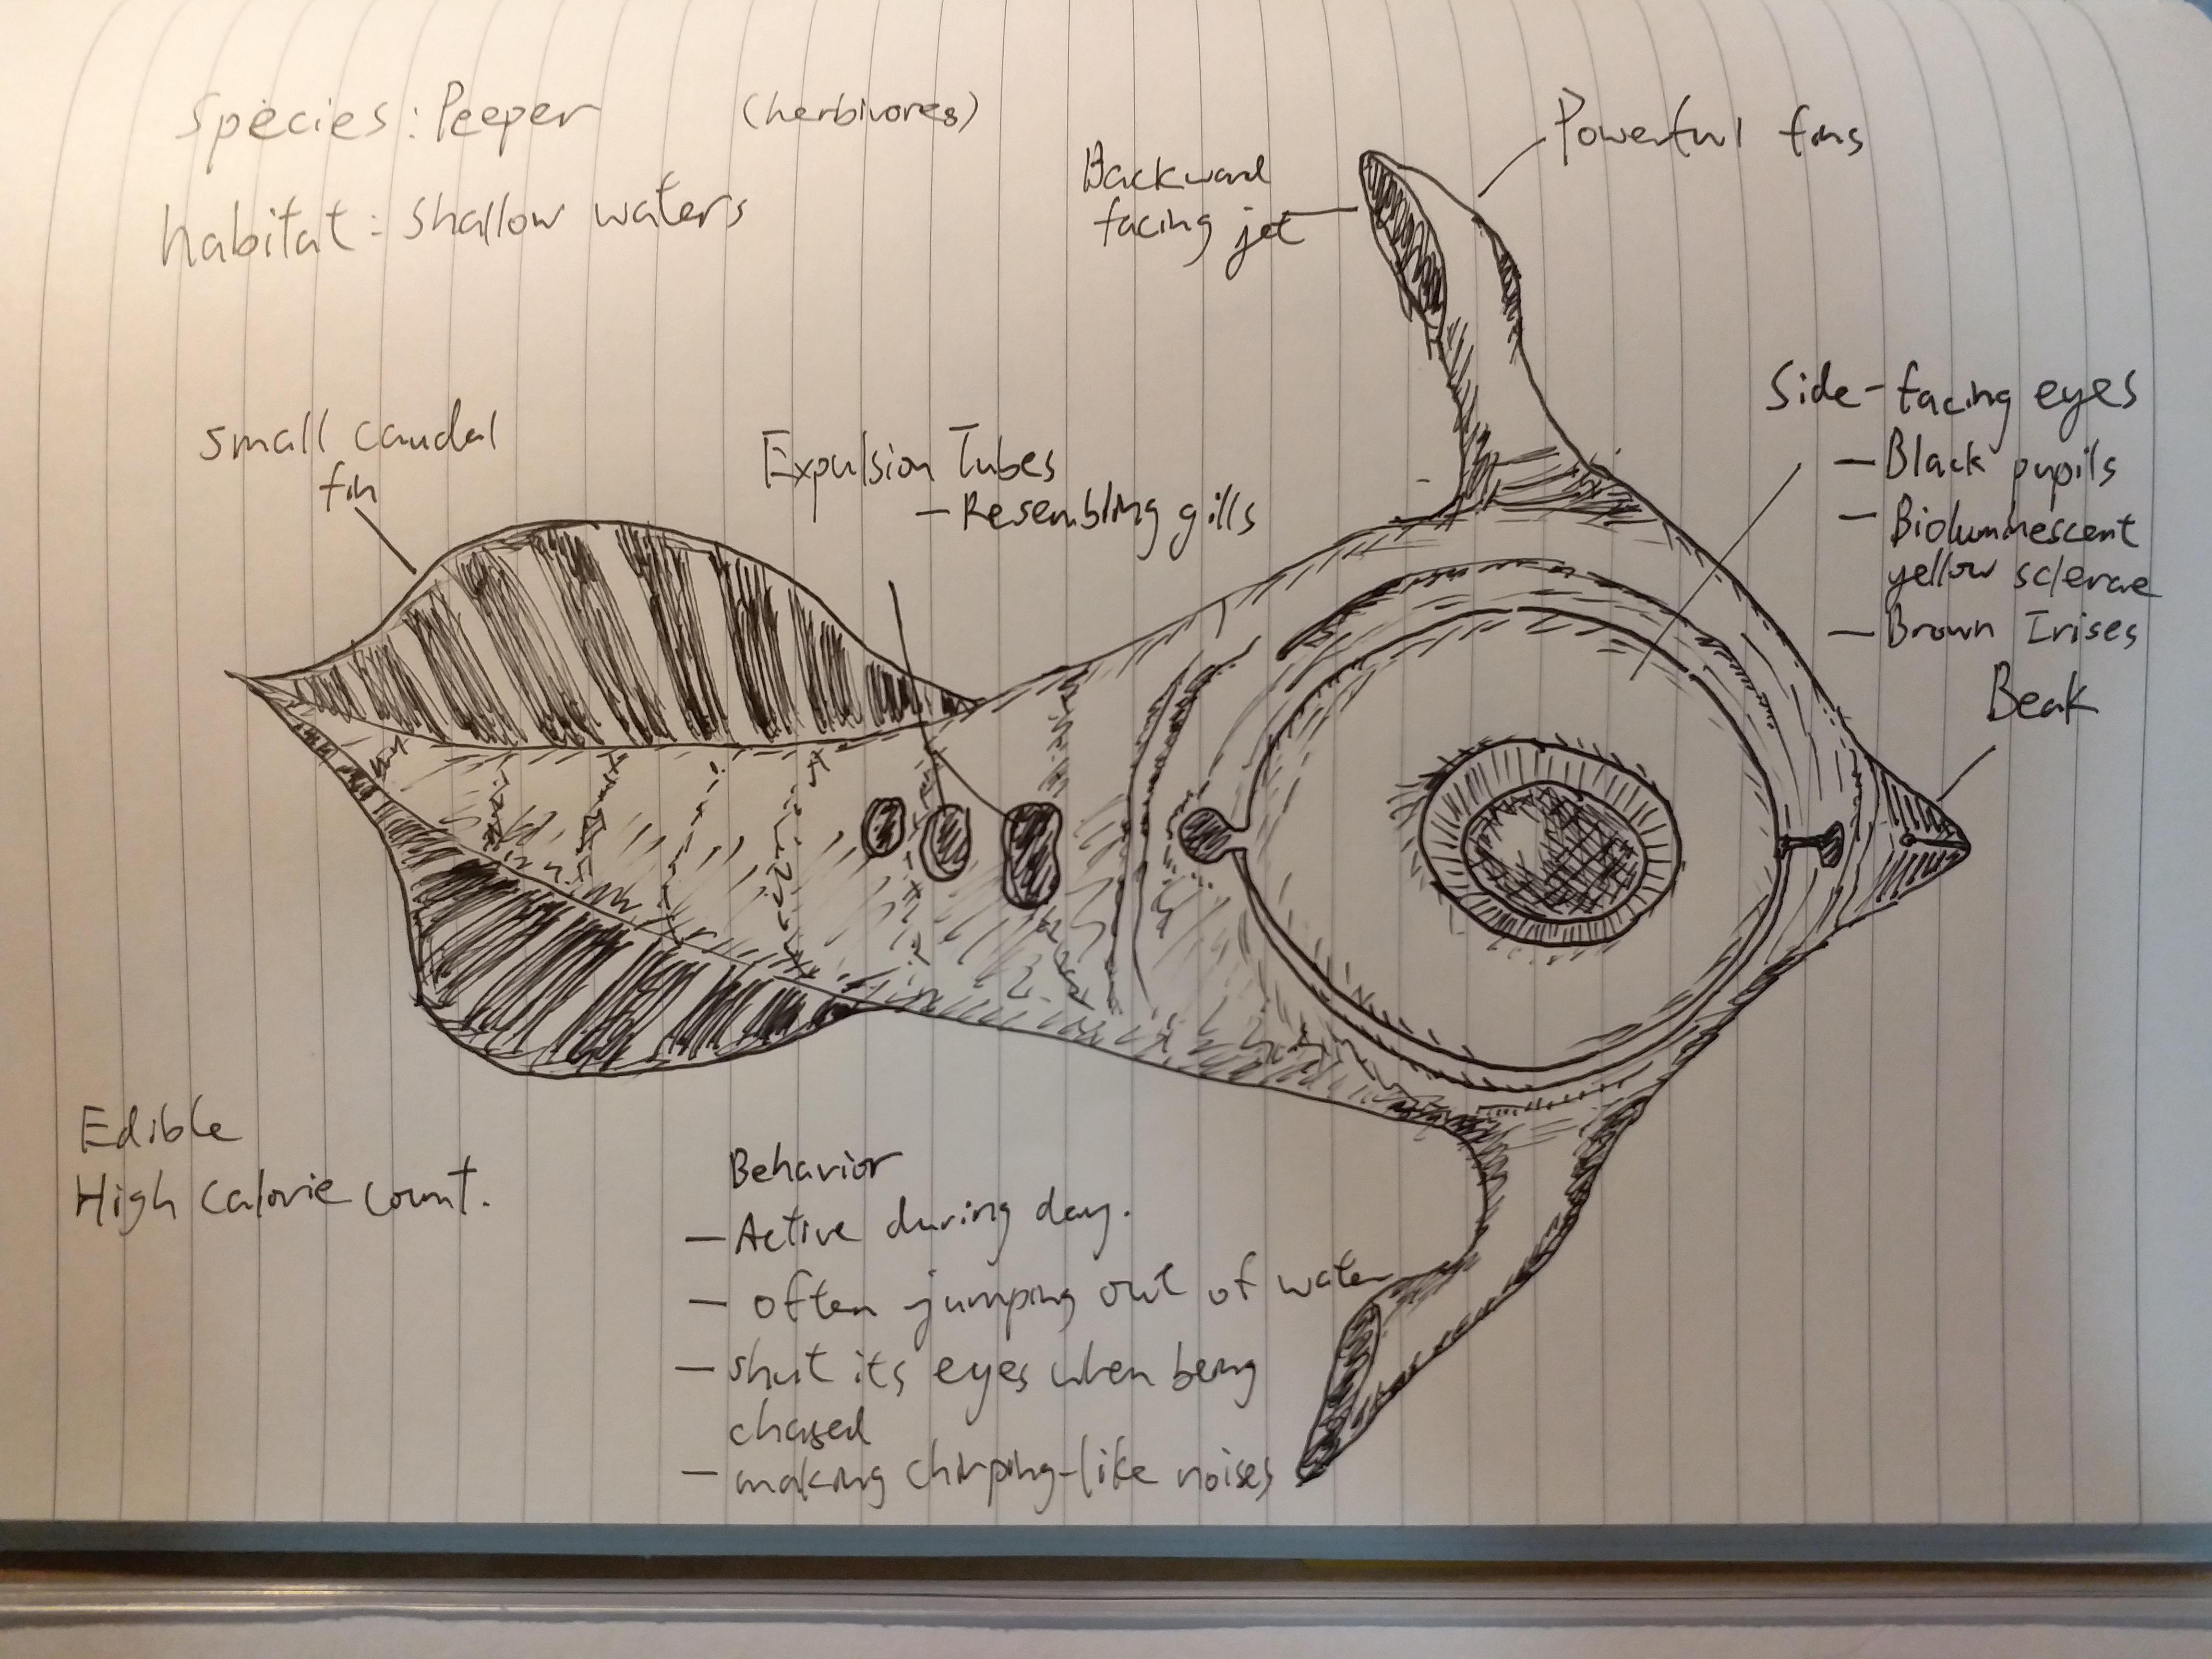 Species: Peeper (herbivores)
habitat: Shallow waters
Backward
facing jet
Powerful fins
Side-facing eyes
— Black pupils
— Bioluminescent
yellow sclerae
— Brown Irises
Beak
Small caudal
fin
Expulsion Tubes
— Resembling gills
Edible
High calorie count.
Behavior
— Active during day.
— often jumping out of water
— shut its eyes when being
chased
— making chirping-like noises